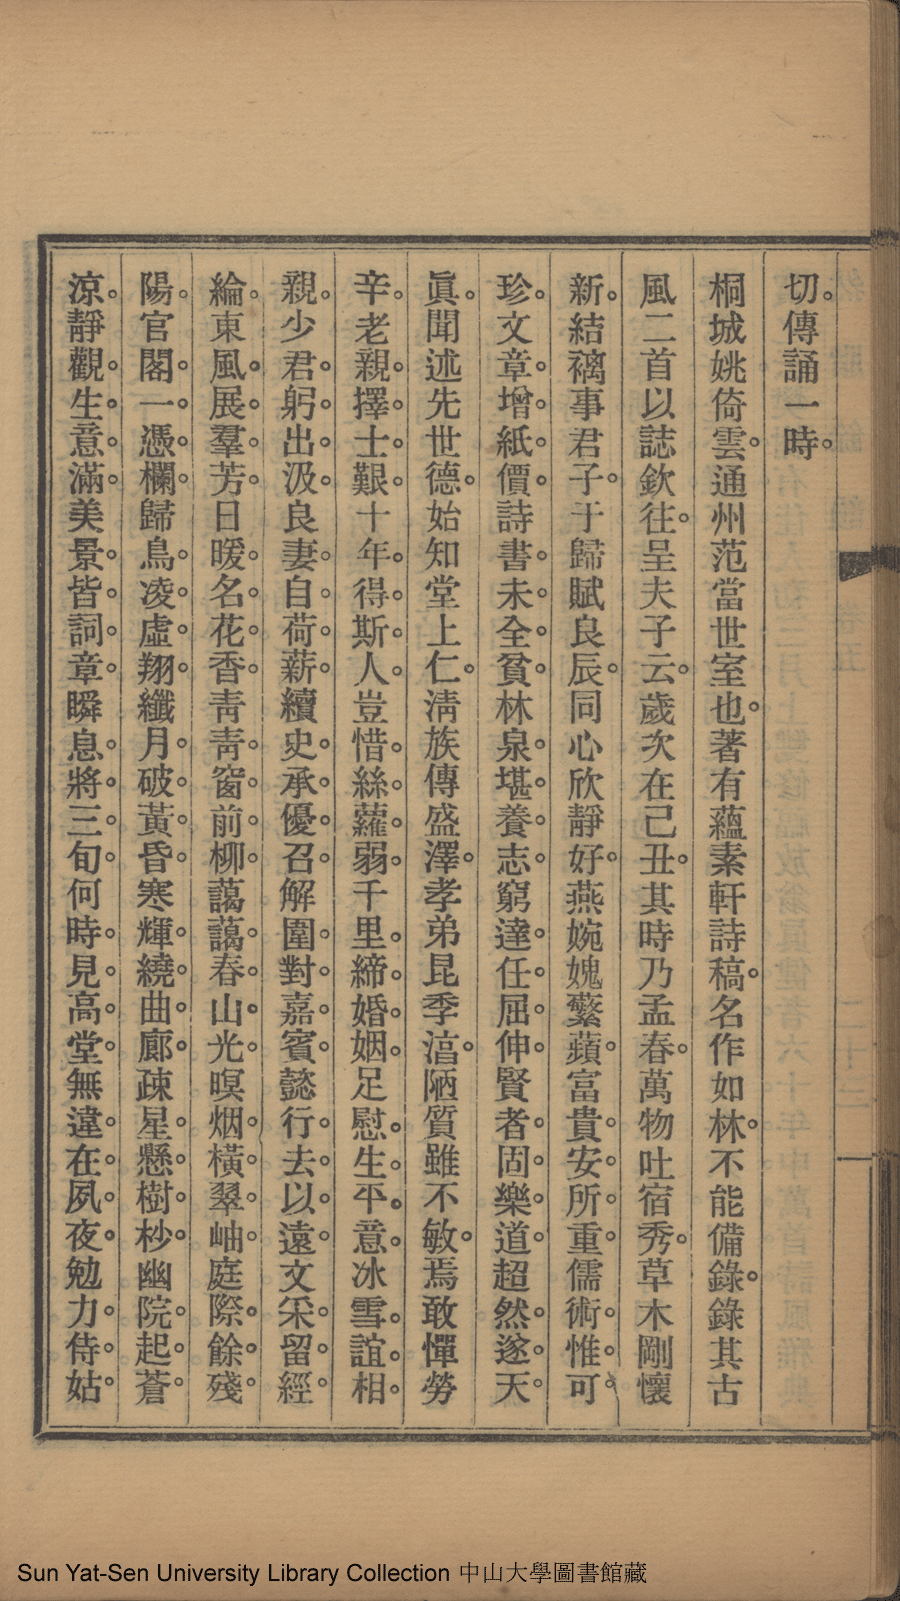 切傳誦一時
桐城姚倚雲通州范當世室也著有蘊素軒詩稿名作如林不能備錄錄其古
風二首以誌欽往呈夫子云歲次在己丑其時乃孟春萬物吐宿秀草木剛懷
新結褵事君子于歸賦良辰同心欣靜好燕婉媿蘩蘋富貴安所重儒術惟可
珍文章增紙價詩書未全貧林泉堪養志窮達任屈伸賢者固樂道超然遂天
眞聞述先世德始知堂上仁淸族傳盛澤孝弟昆季湻陋質雖不敏焉敢憚勞
辛老親擇士艱十年得斯人豈惜絲蘿弱千里締婚姻足慰生平意冰雪誼相
親少君躬出汲良妻自荷薪續史承優召解圍對嘉賓懿行去以遠文采留經
綸東風展羣芳日暖名花香靑靑窗前柳藹藹春山光暝烟橫翠岫庭際餘殘
陽官閣一憑欄歸鳥凌虛翔纖月破黃昏寒輝繞曲廊疎星懸樹杪幽院起蒼
涼靜觀生意滿美景皆詞章瞬息將三旬何時見高堂無違在夙夜勉力侍姑
Sun Yat-Sen University Library Collection 中山大學圖書館藏